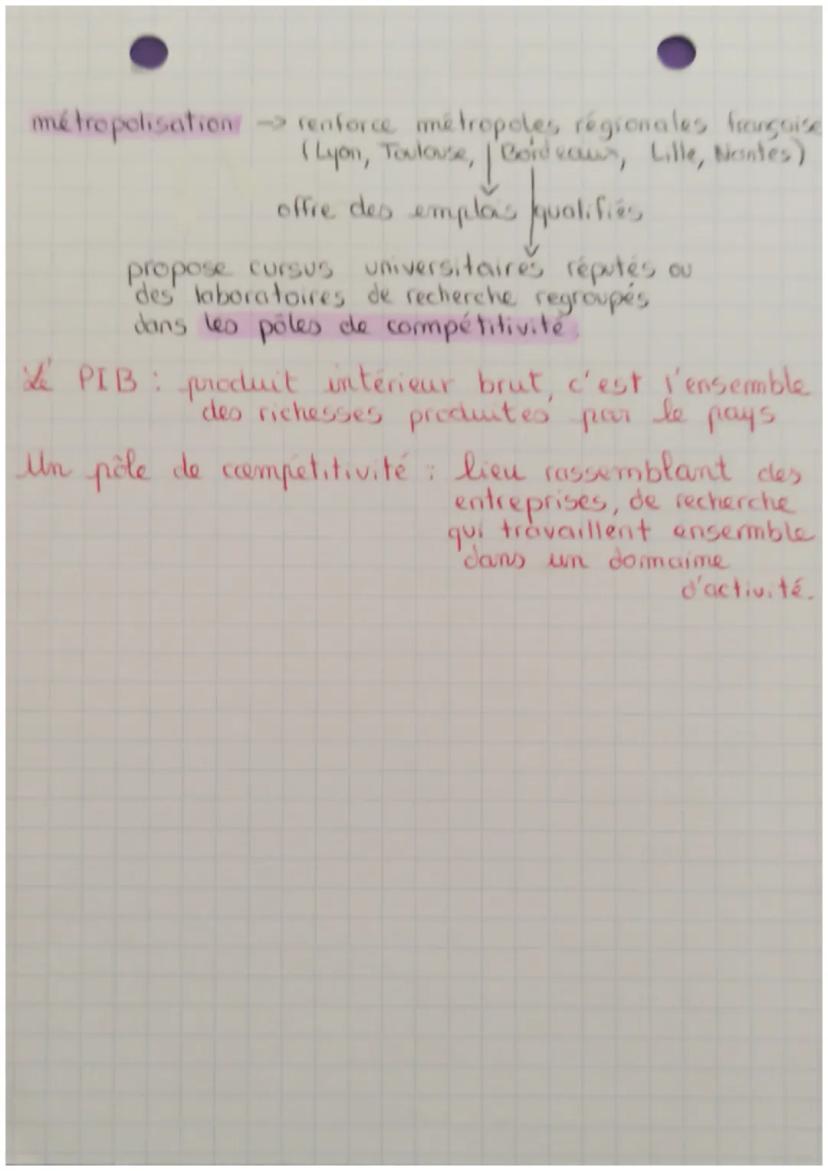 métropolisation -> renforce métropoles régionales française
(Lyon, Toulouse, Bordeaux, Lille, Nantes)
offre des emplois qualifiés
propose cursus universitaires réputés ou
des laboratoires de recherche regroupés
dans les pôles de compétitivité
Le PIB : produit intérieur brut, c'est l'ensemble
des richesses produites par le pays
Un pôle de compétitivité : lieu rassemblant des
entreprises, de recherche
qui travaillent ensemble
dans un domaine
d'activité.